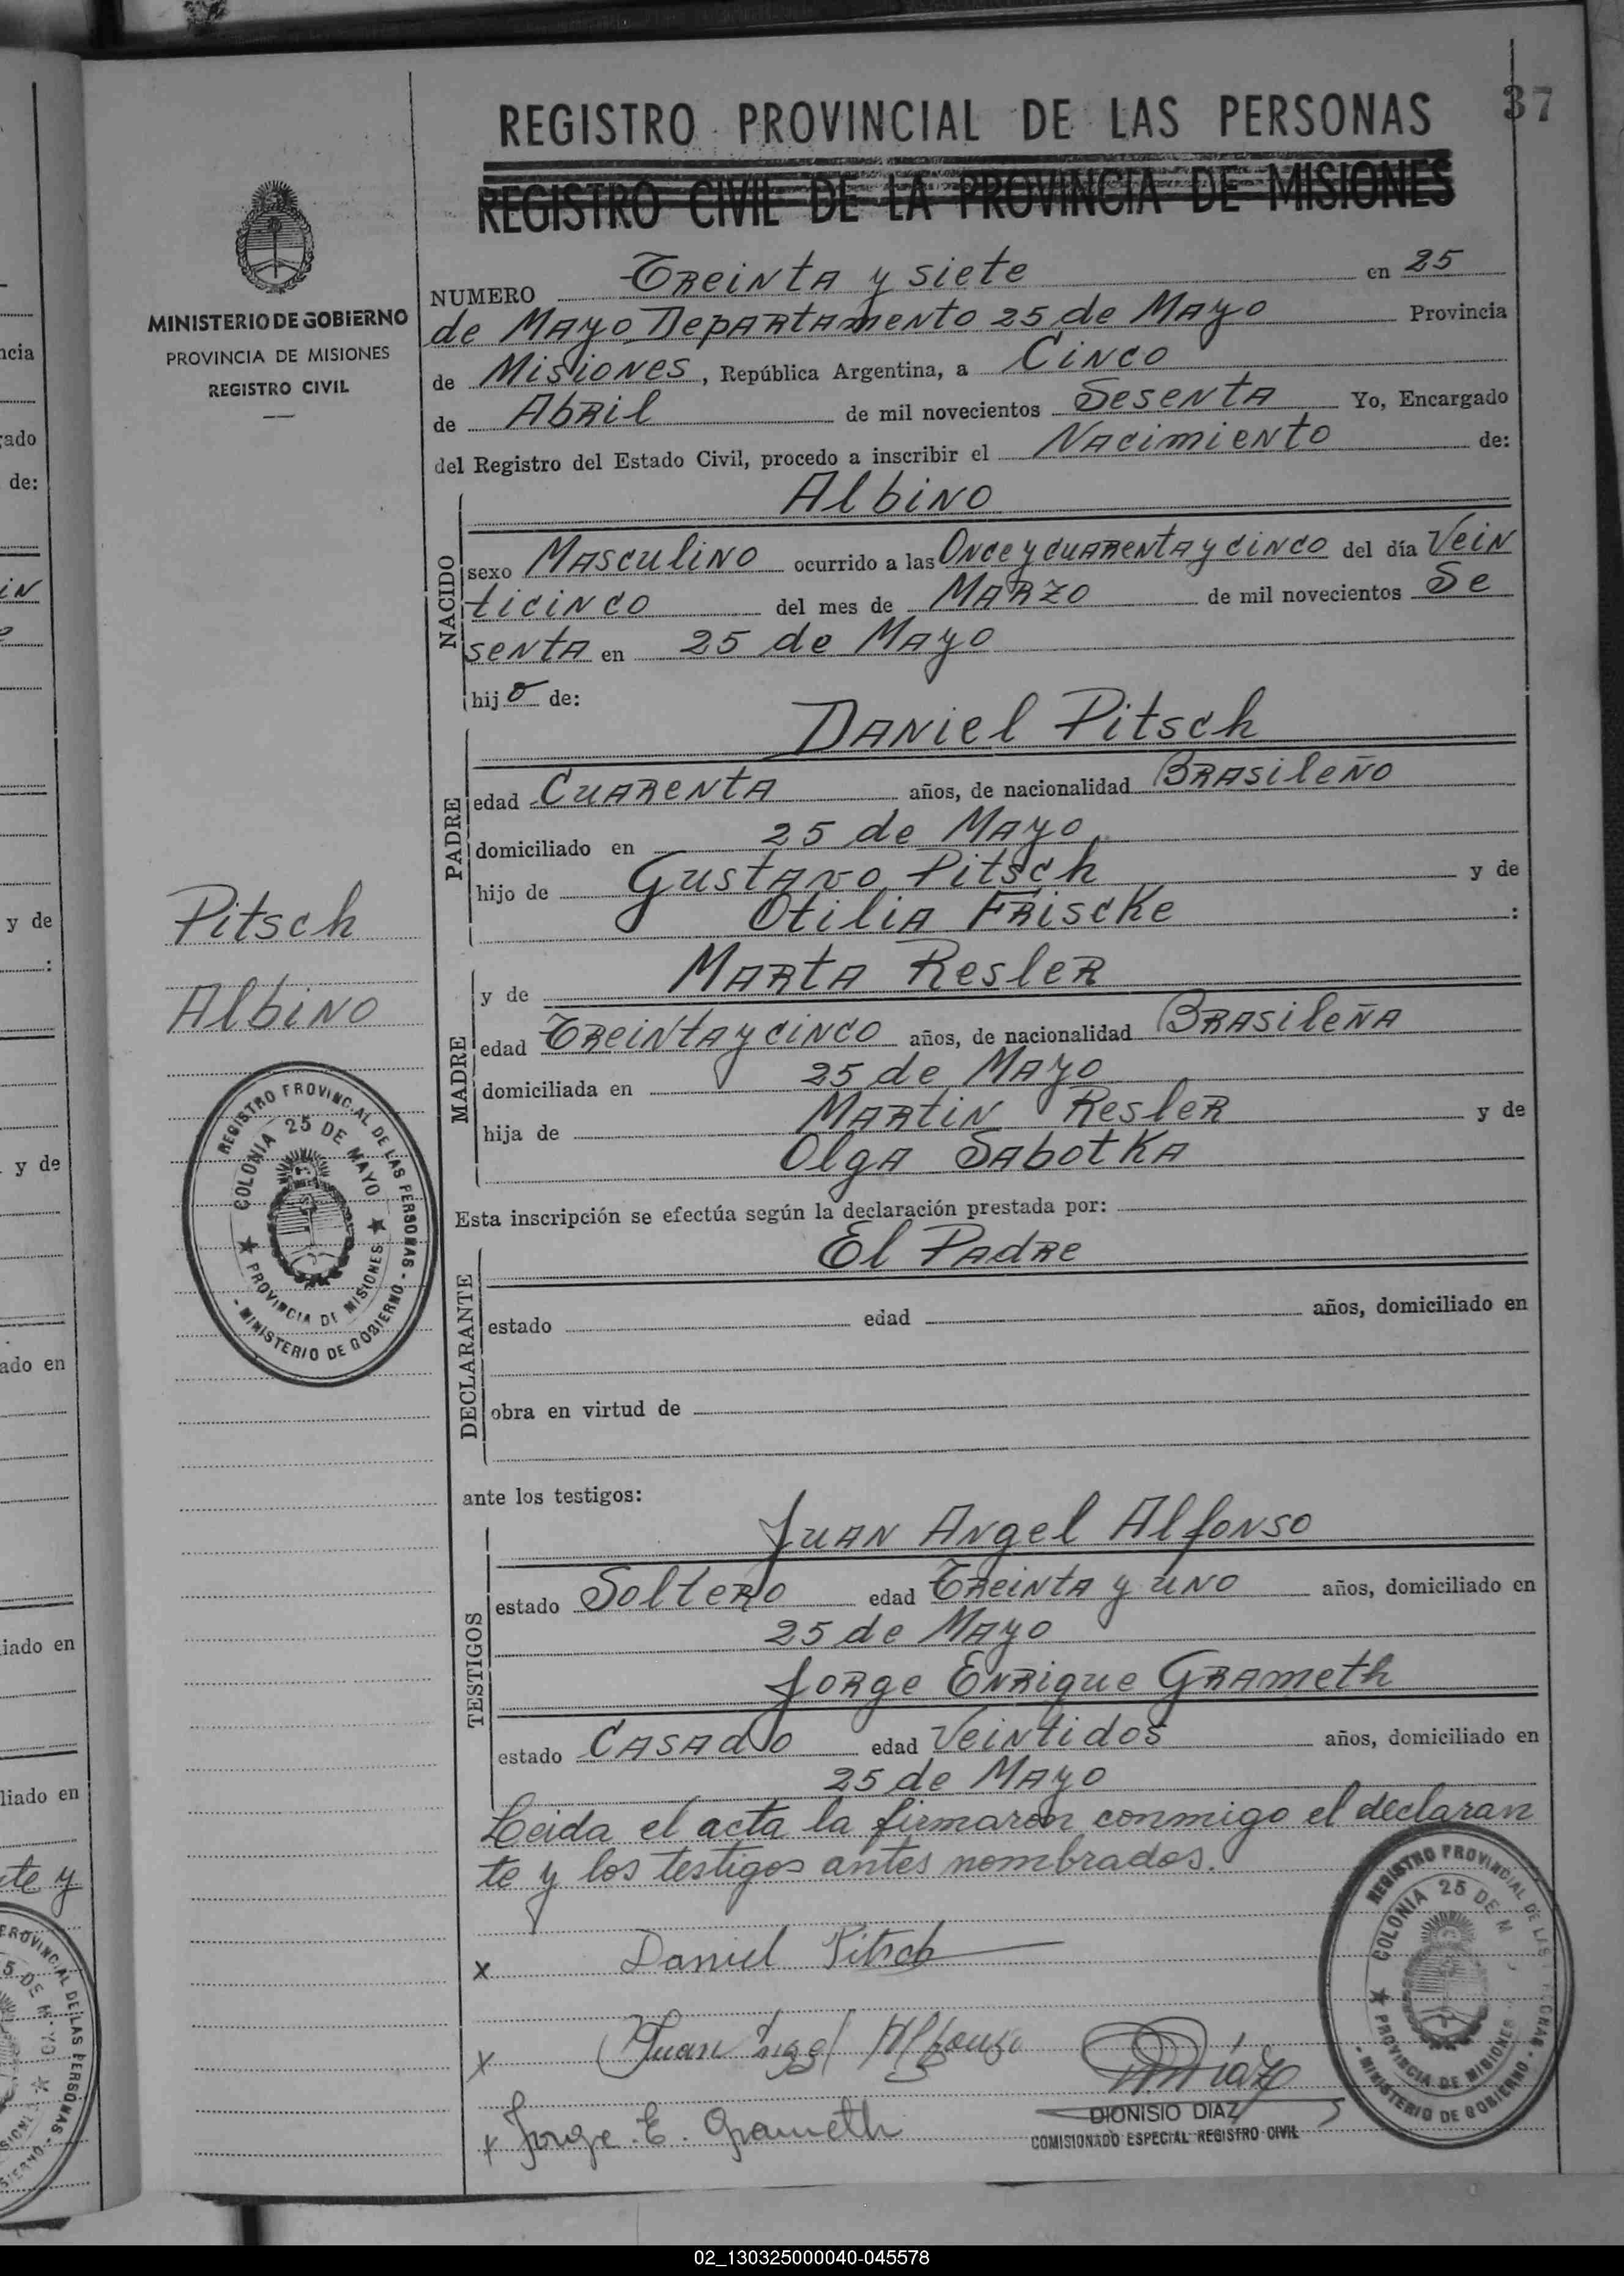 37
REGISTRO PROVINCIAL DE LAS PERSONAS
REGISTRO CIVIL DE LA PROVINCIA DE MISIONES
MINISTERIO DE GOBIERNO
PROVINCIA DE MISIONES
REGISTRO CIVIL
NUMERO Treinta y siete en 25
de Mayo Departamento 25 de Mayo Provincia
de Misiones, República Argentina, a Cinco
de Abril de mil novecientos Sesenta Yo, Encargado
del Registro del Estado Civil, procedo a inscribir el Nacimiento de:
NACIDO
Albino
sexo Masculino ocurrido a las Once y cuarenta y cinco del día Vein
ticinco del mes de Marzo de mil novecientos Se
senta en 25 de Mayo
hijo de:
PADRE
Daniel Pitsch
edad Cuarenta años, de nacionalidad Brasileño
domiciliado en 25 de Mayo
hijo de Gustavo Pitsch y de
Otilia Friscke :
Pitsch
Albino
MADRE
y de Marta Resler
edad Treinta y cinco años, de nacionalidad Brasileña
domiciliada en 25 de Mayo
hija de Martin Resler y de
Olga Sabotka
REGISTRO PROVINCIAL DE LAS PERSONAS - MINISTERIO DE GOBIERNO -
COLONIA 25 DE MAYO ★ PROVINCIA DE MISIONES ★
Esta inscripción se efectúa según la declaración prestada por:
DECLARANTE
El Padre
estado edad años, domiciliado en
obra en virtud de
ante los testigos:
TESTIGOS
Juan Angel Alfonso
estado Soltero edad Treinta y uno años, domiciliado en
25 de Mayo
Jorge Enrique Grameth
estado Casado edad Veintidos años, domiciliado en
25 de Mayo
Leida el acta la firmaron conmigo el declaran
te y los testigos antes nombrados.
x Daniel Pitsch
x Juan Angel Alfonso
x Jorge. E. Grameth
D Diaz
DIONISIO DIAZ
COMISIONADO ESPECIAL REGISTRO CIVIL
REGISTRO PROVINCIAL DE LAS PERSONAS - MINISTERIO DE GOBIERNO -
COLONIA 25 DE M ★ PROVINCIA DE MISIONES
ncia
gado
de:
in
y de
:
y de
ado en
iado en
liado en
te y
02_130325000040-045578